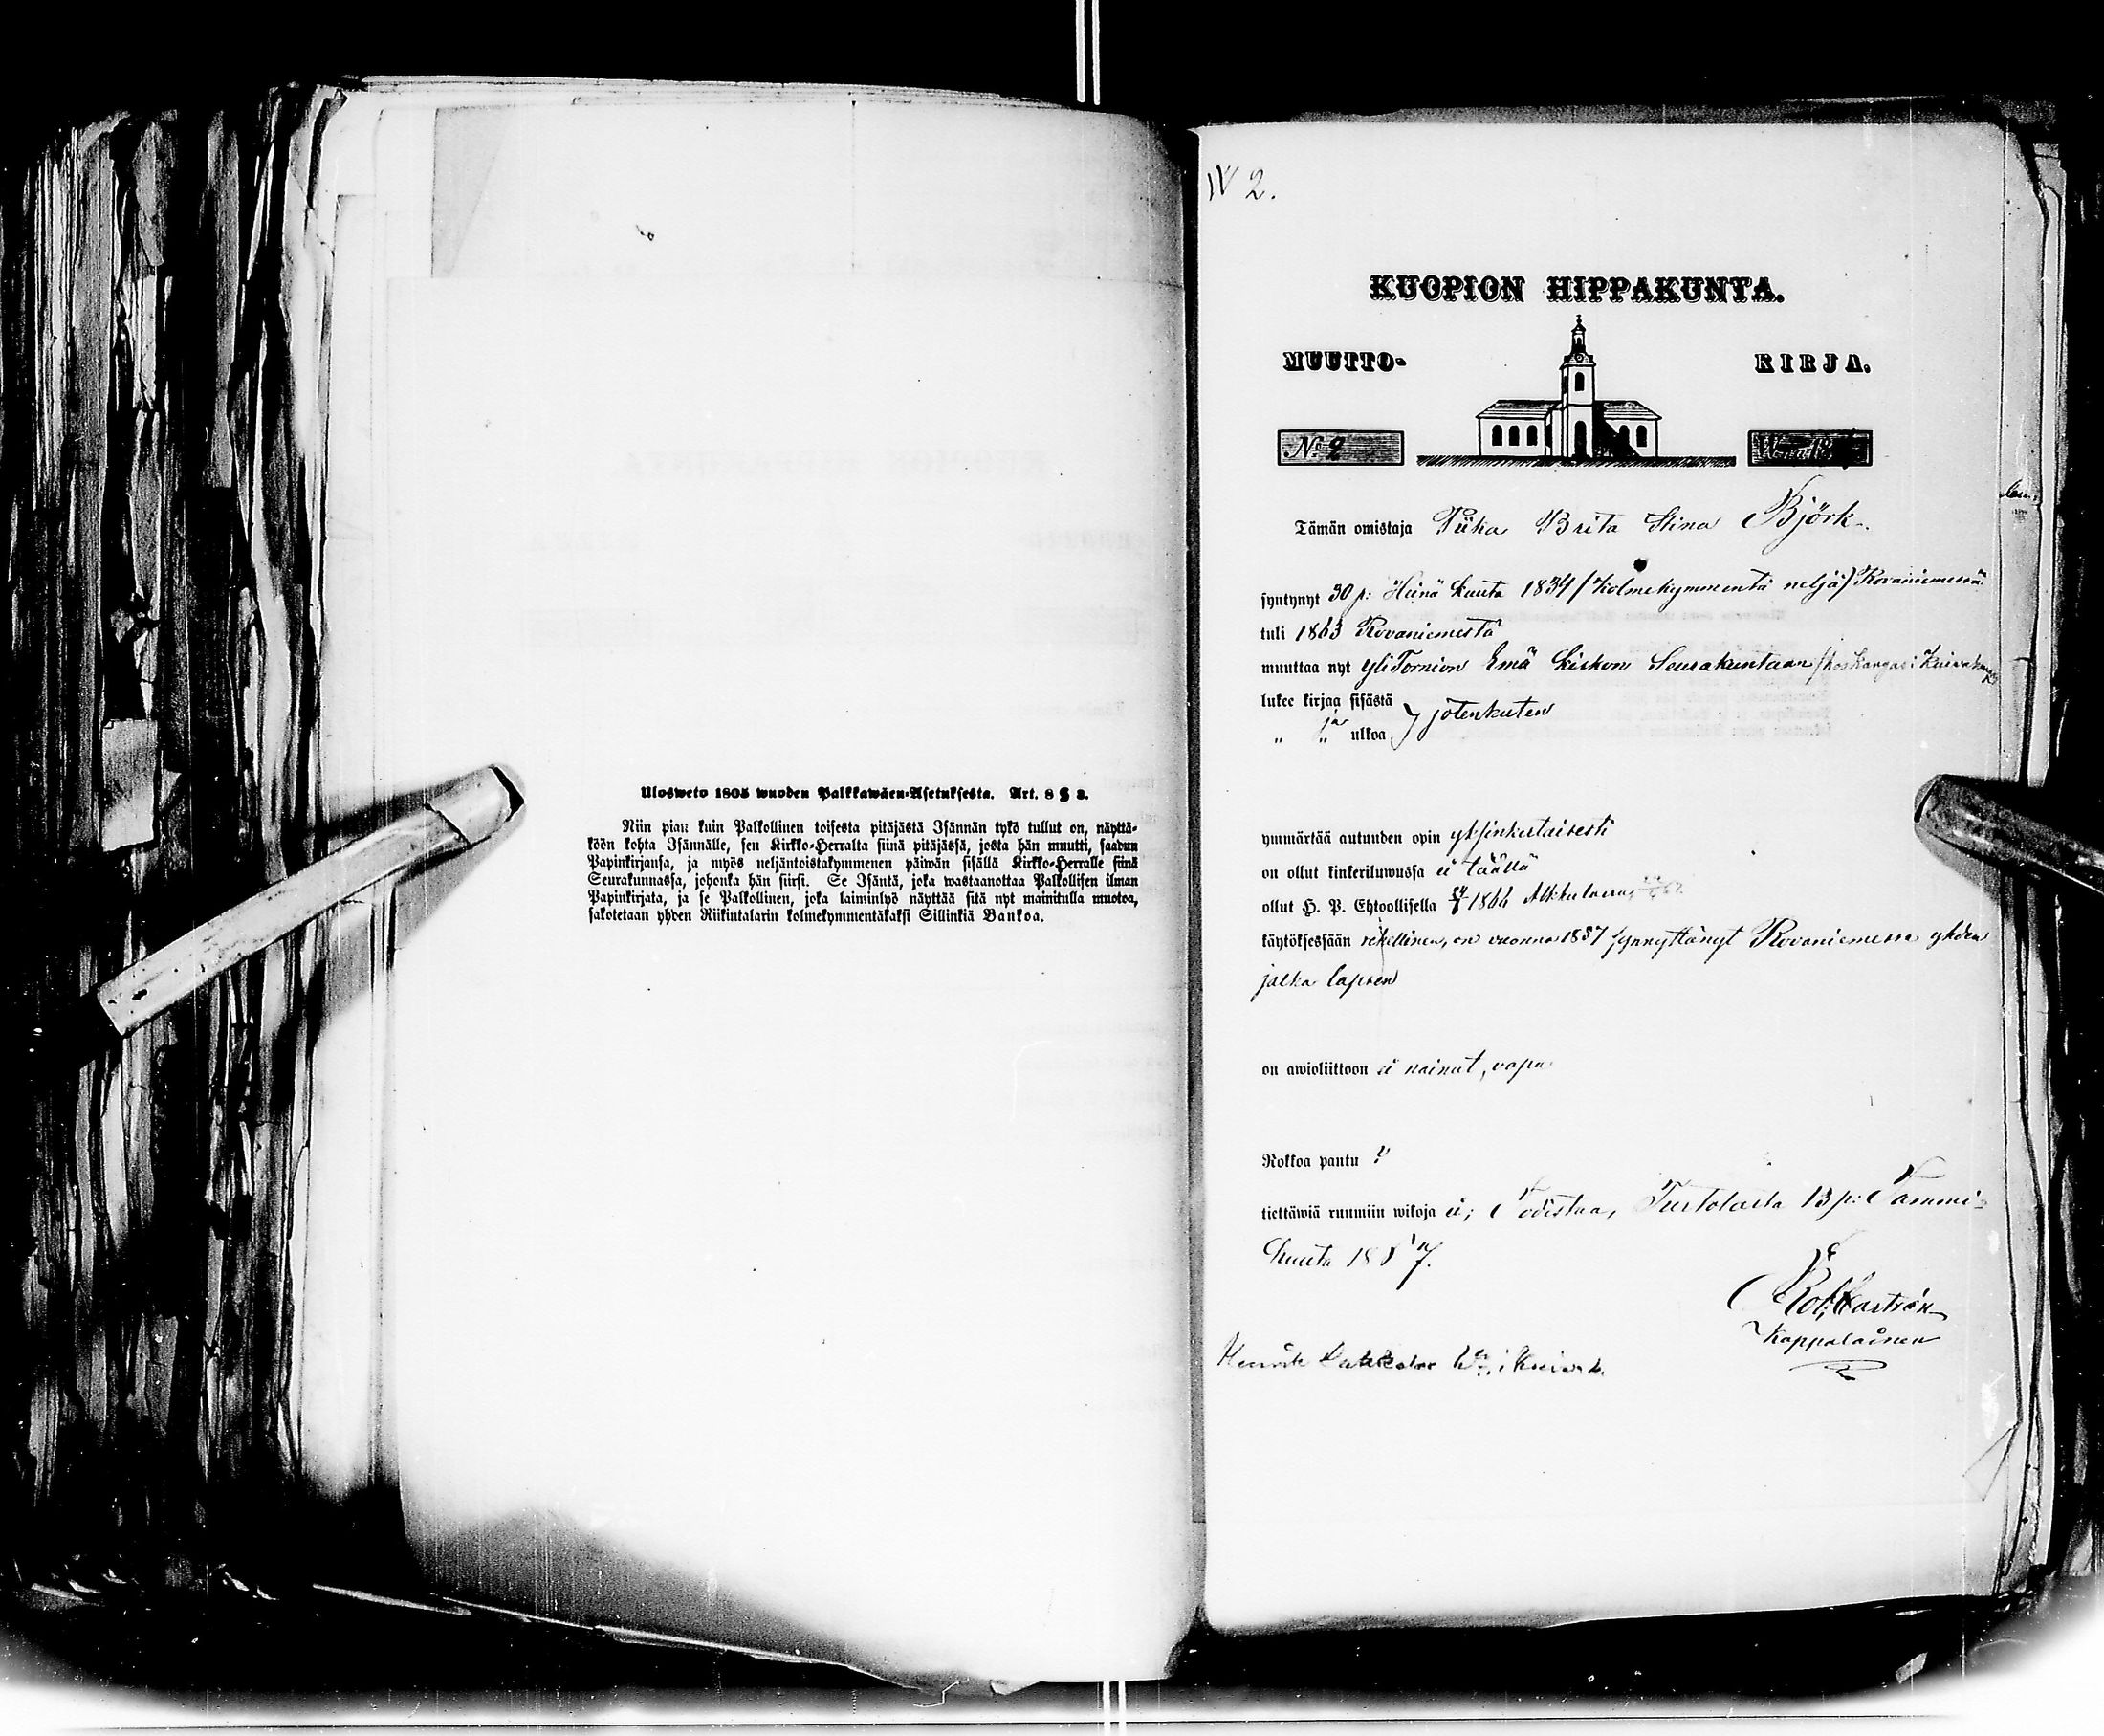 Ulosweto 1805 wuoden Palkkawäen-Asetuksesta. Art. 8 § 2.
Niin pian kuin Palkollinen toisesta pitäjästä Isännän tykö tullut on, näyttä-
köön kohta Isännälle, sen Kirkko-Herralta siinä pitäjässä, josta hän muutti, saadun
Papinkirjansa, ja myös neljäntoistakymmenen päiwän sisällä Kirkko-Herralle siinä
Seurakunnassa, johonka hän siirsi. Se Isäntä, joka wastaanottaa Palkollisen ilman
Papinkirjata, ja se Palkollinen, joka laiminlyö näyttää sitä nyt mainitulla muotoa,
sakotetaan yhden Riikintalarin kolmekymmentäkaksi Sillinkiä Bankoa.
N 2.
KUOPION HIPPAKUNTA.
MUUTTO- KIRJA.
No 2
Tämän omistaja Piika Brita Stina Björk
syntynyt 30 p: Heinä kuuta 1834 (kolmekymmentä neljä) Rovaniemessä
tuli 1863 Rovaniemestä
muuttaa nyt yliTornion Emä kirkon Seurakuntaan
lukee kirjaa sisästä
" ja " ulkoa } jotenkuten
ymmärtää autuuden opin yksinkertaisesti
on ollut kinkeriluwussa ei täällä
ollut H. P. Ehtoollisella 1866
käytöksessään rehellinen, on vuonna 1857 synnyttänyt Rovaniemessa yhden
jalka lapsen
on awioliittoon ei nainut, vapa
Rokkoa pantu
tiettäwiä ruumiin wikoja ei; Todistaa, Turtolasta 13 p: Tammi-
kuuta 1867.
Kappalainen
Henrik